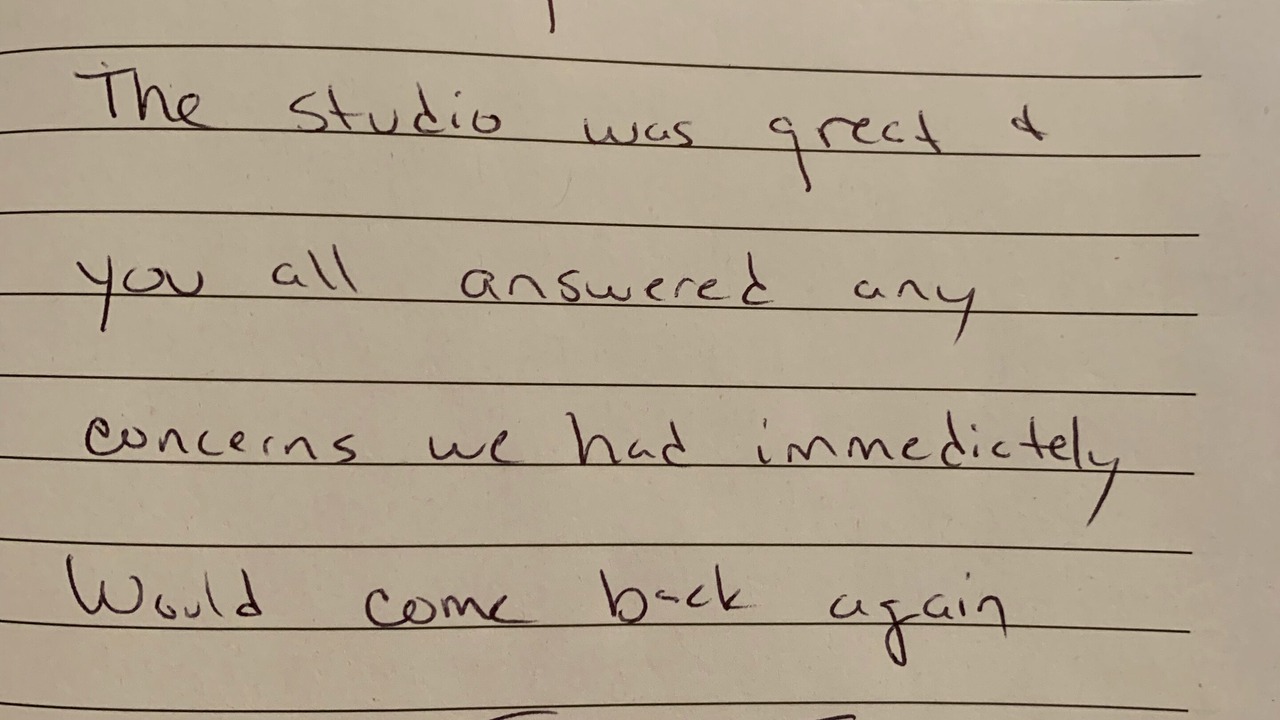 The studio was great &
you all answered any
concerns we had immediately
Would come back again